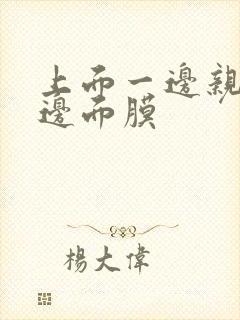 上而一邊親
邊而膜
楊大偉